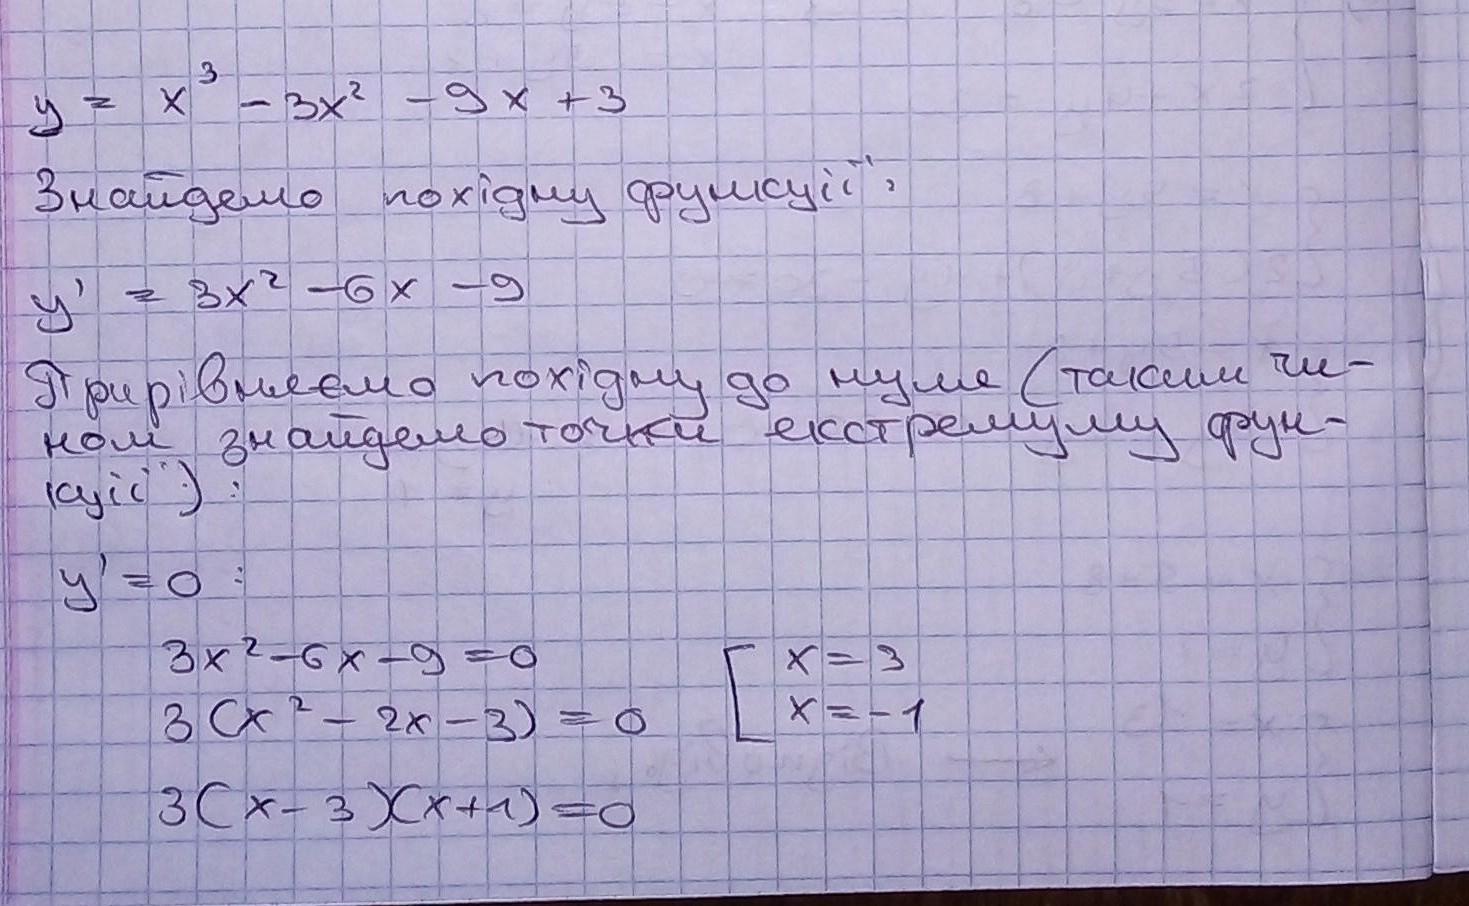 y = x³ - 3x² - 9x + 3
Знайдемо похідну функції:
y' = 3x² - 6x - 9
Прирівнюємо похідну до нуля (таким чи-
ном знайдемо точки екстремуму фун-
кції):
y' = 0 :
3x² - 6x - 9 = 0 [ x = 3
3(x² - 2x - 3) = 0 [ x = -1
3(x - 3)(x + 1) = 0